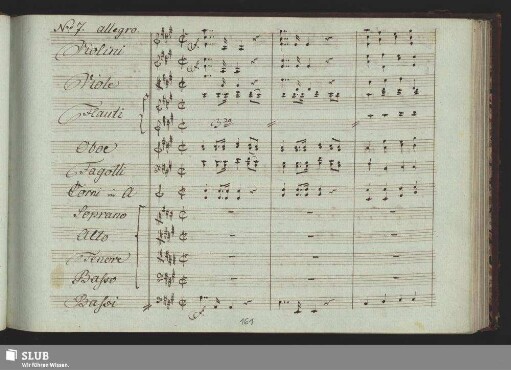 No 7. allegro.
Violini
Viole
Flauti
Oboe
Fagotti
Corni in A
Soprano
Alto
Tenore
Basso
Bassi
161
SLUB
Wir führen Wissen.